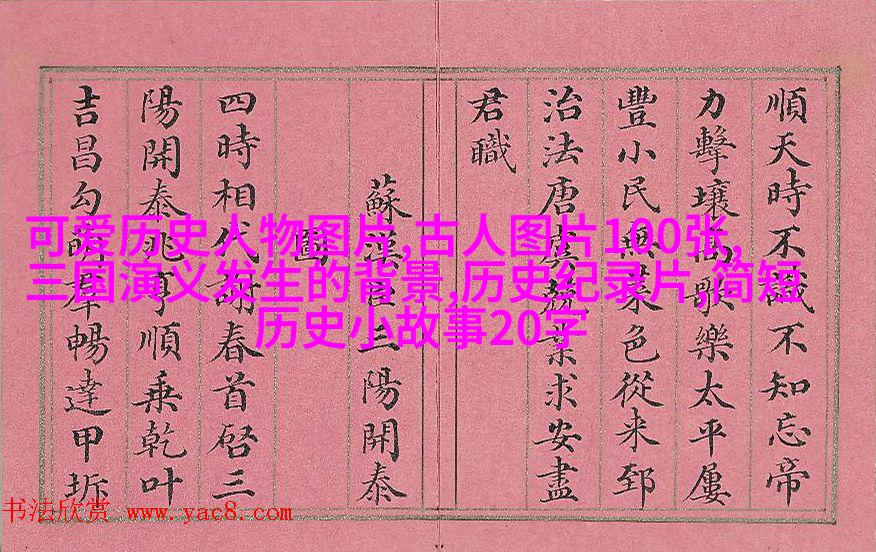 順天時不識不知忘帝
力擊壤高歌樂太平屢
豐小民無菜色從来郅
治法唐虞兢業求安盡
君職
蘇漢臣三陽開泰
圖
四時相代謝春首啓三
陽開泰兆亨順乗乾叶
吉昌勾萌羣暢達甲坼
可爱历史人物图片,古人图片100张,
三国演义发生的背景,历史纪录片,简短
历史小故事20字
书法欣赏 www.yac8.com